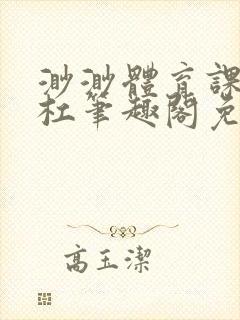 渺渺體育課
杜筆趣閣免
高玉潔